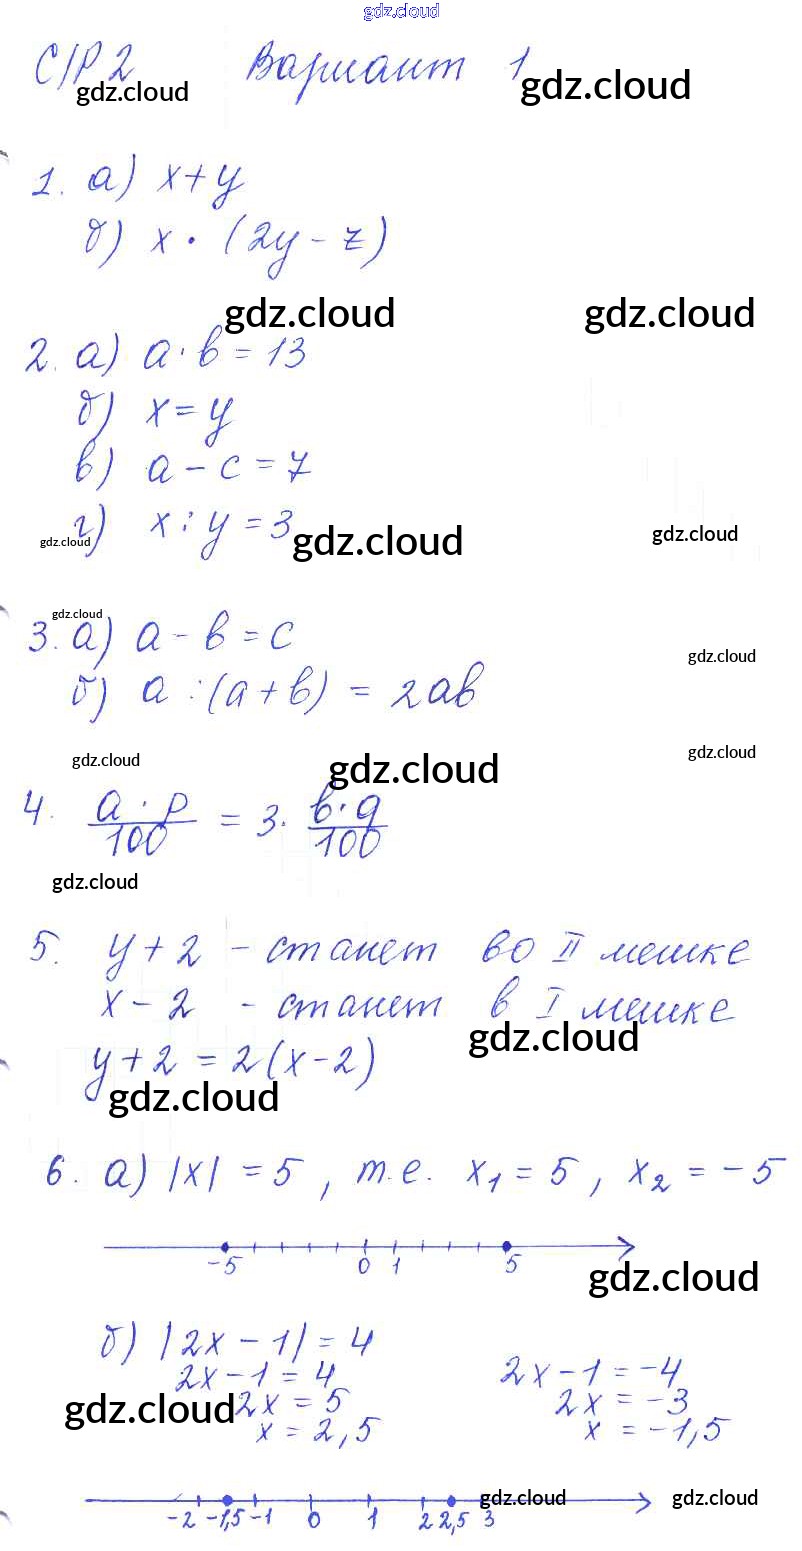 gdz.cloud
С/Р 2 Вариант 1
gdz.cloud gdz.cloud
1. а) x+y
б) x · (2y - z)
gdz.cloud gdz.cloud
2. а) a · b = 13
б) x = y
в) a - c = 7
г) x : y = 3
gdz.cloud gdz.cloud gdz.cloud
gdz.cloud
3. а) a - b = c
gdz.cloud
б) a : (a + b) = 2ab
gdz.cloud gdz.cloud gdz.cloud
4. a · p / 100 = 3 · b · q / 100
gdz.cloud
5. y + 2 - станет во II мешке
x - 2 - станет в I мешке
gdz.cloud
y + 2 = 2(x - 2)
gdz.cloud
6. а) |x| = 5, т.е. x₁ = 5, x₂ = -5
-5 0 1 5
gdz.cloud
б) |2x - 1| = 4
2x - 1 = 4 2x - 1 = -4
2x = 5 2x = -3
gdz.cloud
x = 2,5 x = -1,5
gdz.cloud gdz.cloud
-2 -1,5 -1 0 1 2 2,5 3